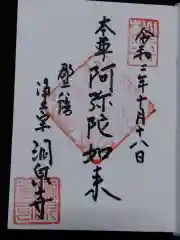 令和二年十月十八日
本尊 阿弥陀如来
浄土宗 洞泉寺